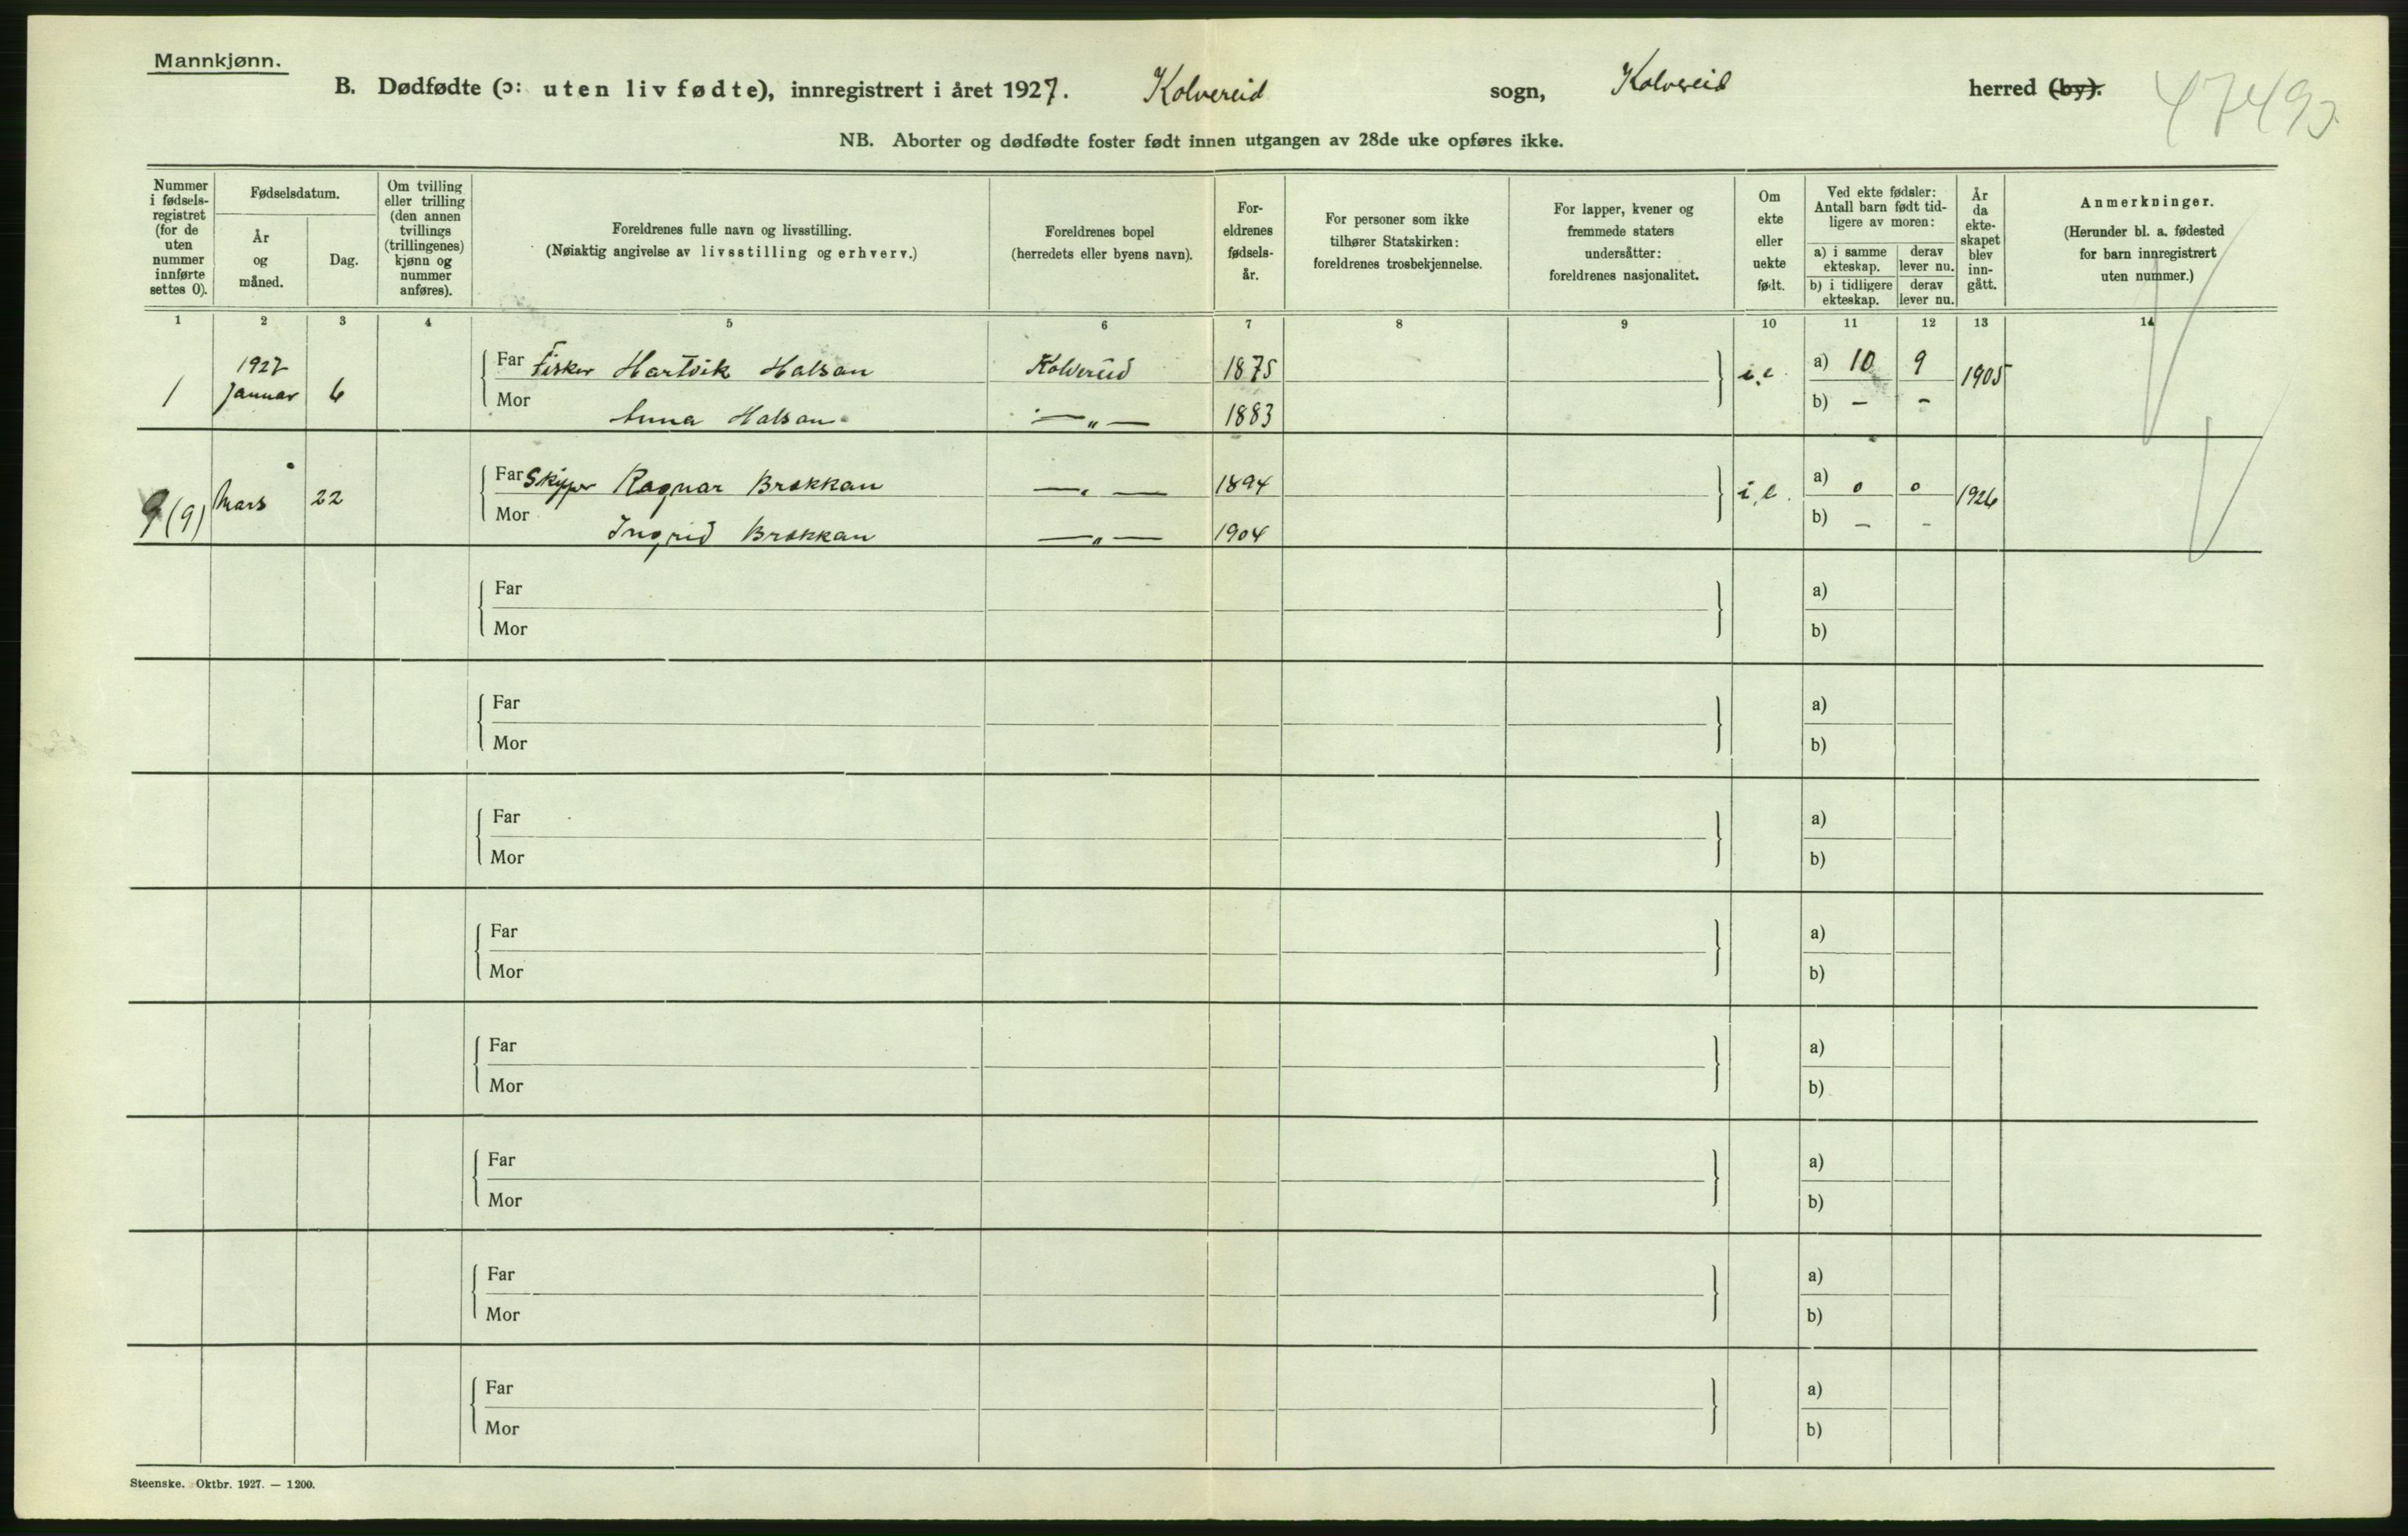 Mannkjønn.
B. Dødfødte (ɔ: uten liv fødte), innregistrert i året 1927. Kolvereid sogn, Kolvereid herred (by).
NB. Aborter og dødfødte foster født innen utgangen av 28de uke opføres ikke.
Nummer i fødsels-registret (for de uten nummer innførte settes 0).
Fødselsdatum.
År og måned.
Dag.
Om tvilling eller trilling (den annen tvillings (trillingenes) kjønn og nummer anføres).
Foreldrenes fulle navn og livsstilling.
(Nøiaktig angivelse av livsstilling og erhverv.)
Foreldrenes bopel
(herredets eller byens navn).
For-eldrenes fødsels-år.
For personer som ikke tilhører Statskirken: foreldrenes trosbekjennelse.
For lapper, kvener og fremmede staters undersåtter: foreldrenes nasjonalitet.
Om ekte eller uekte født.
Ved ekte fødsler: Antall barn født tid-ligere av moren:
a) i samme ekteskap.
derav lever nu.
b) i tidligere ekteskap.
derav lever nu.
År da ekte-skapet blev inn-gått.
Anmerkninger.
(Herunder bl. a. fødested for barn innregistrert uten nummer.)
1 2 3 4 5 6 7 8 9 10 11 12 13 14
1 1927 Januar 6 Far Fisker Hartvik Halsan Kolvereid 1875 i.e. a) 10 9 1905
Mor Anna Halsan — „ — 1883 b) – –
9 (9) Mars 22 Far Skipper Ragnar Brekkan — „ — 1894 i.e. a) 0 0 1926
Mor Ingrid Brekkan — „ — 1904 b) – –
Far a)
Mor b)
Far a)
Mor b)
Far a)
Mor b)
Far a)
Mor b)
Far a)
Mor b)
Far a)
Mor b)
Far a)
Mor b)
Far a)
Mor b)
Steenske. Oktbr. 1927. — 1200.